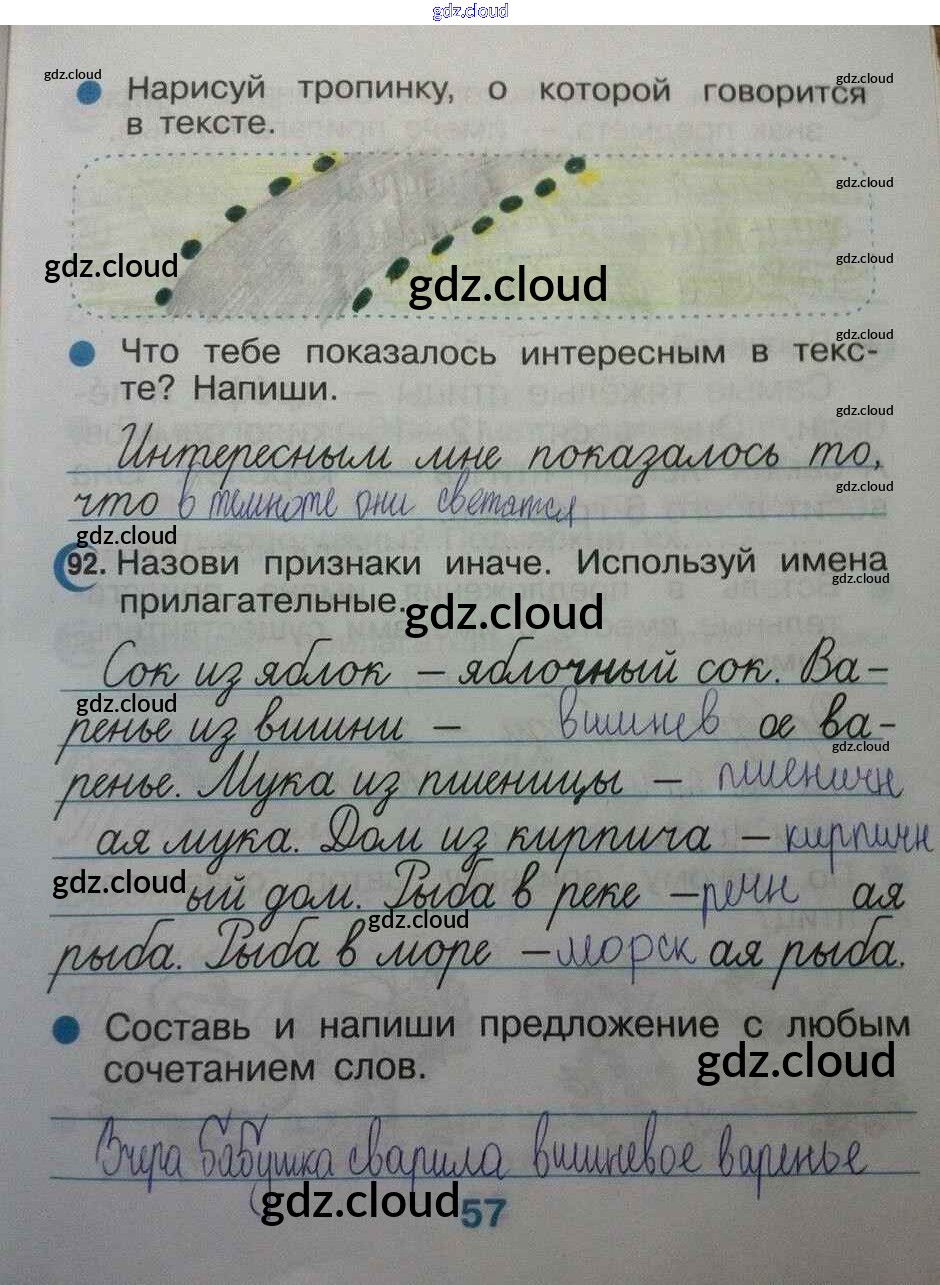 gdz.cloud
gdz.cloud
Нарисуй тропинку, о которой говорится
gdz.cloud
в тексте.
gdz.cloud
gdz.cloud
gdz.cloud
gdz.cloud
gdz.cloud
Что тебе показалось интересным в текс-
те? Напиши.
gdz.cloud
Интересным мне показалось то,
gdz.cloud
что в темноте они светятся
gdz.cloud
92. Назови признаки иначе. Используй имена
gdz.cloud
прилагательные.
gdz.cloud
Сок из яблок – яблочный сок. Ва-
gdz.cloud
ренье из вишни – вишнев ое ва-
gdz.cloud
ренье. Мука из пшеницы – пшеничн
ая мука. Дом из кирпича – кирпичн
gdz.cloud
ый дом. Рыба в реке – речн ая
gdz.cloud
рыба. Рыба в море – морск ая рыба.
Составь и напиши предложение с любым
сочетанием слов.
gdz.cloud
Вчера бабушка сварила вишневое варенье
gdz.cloud
57